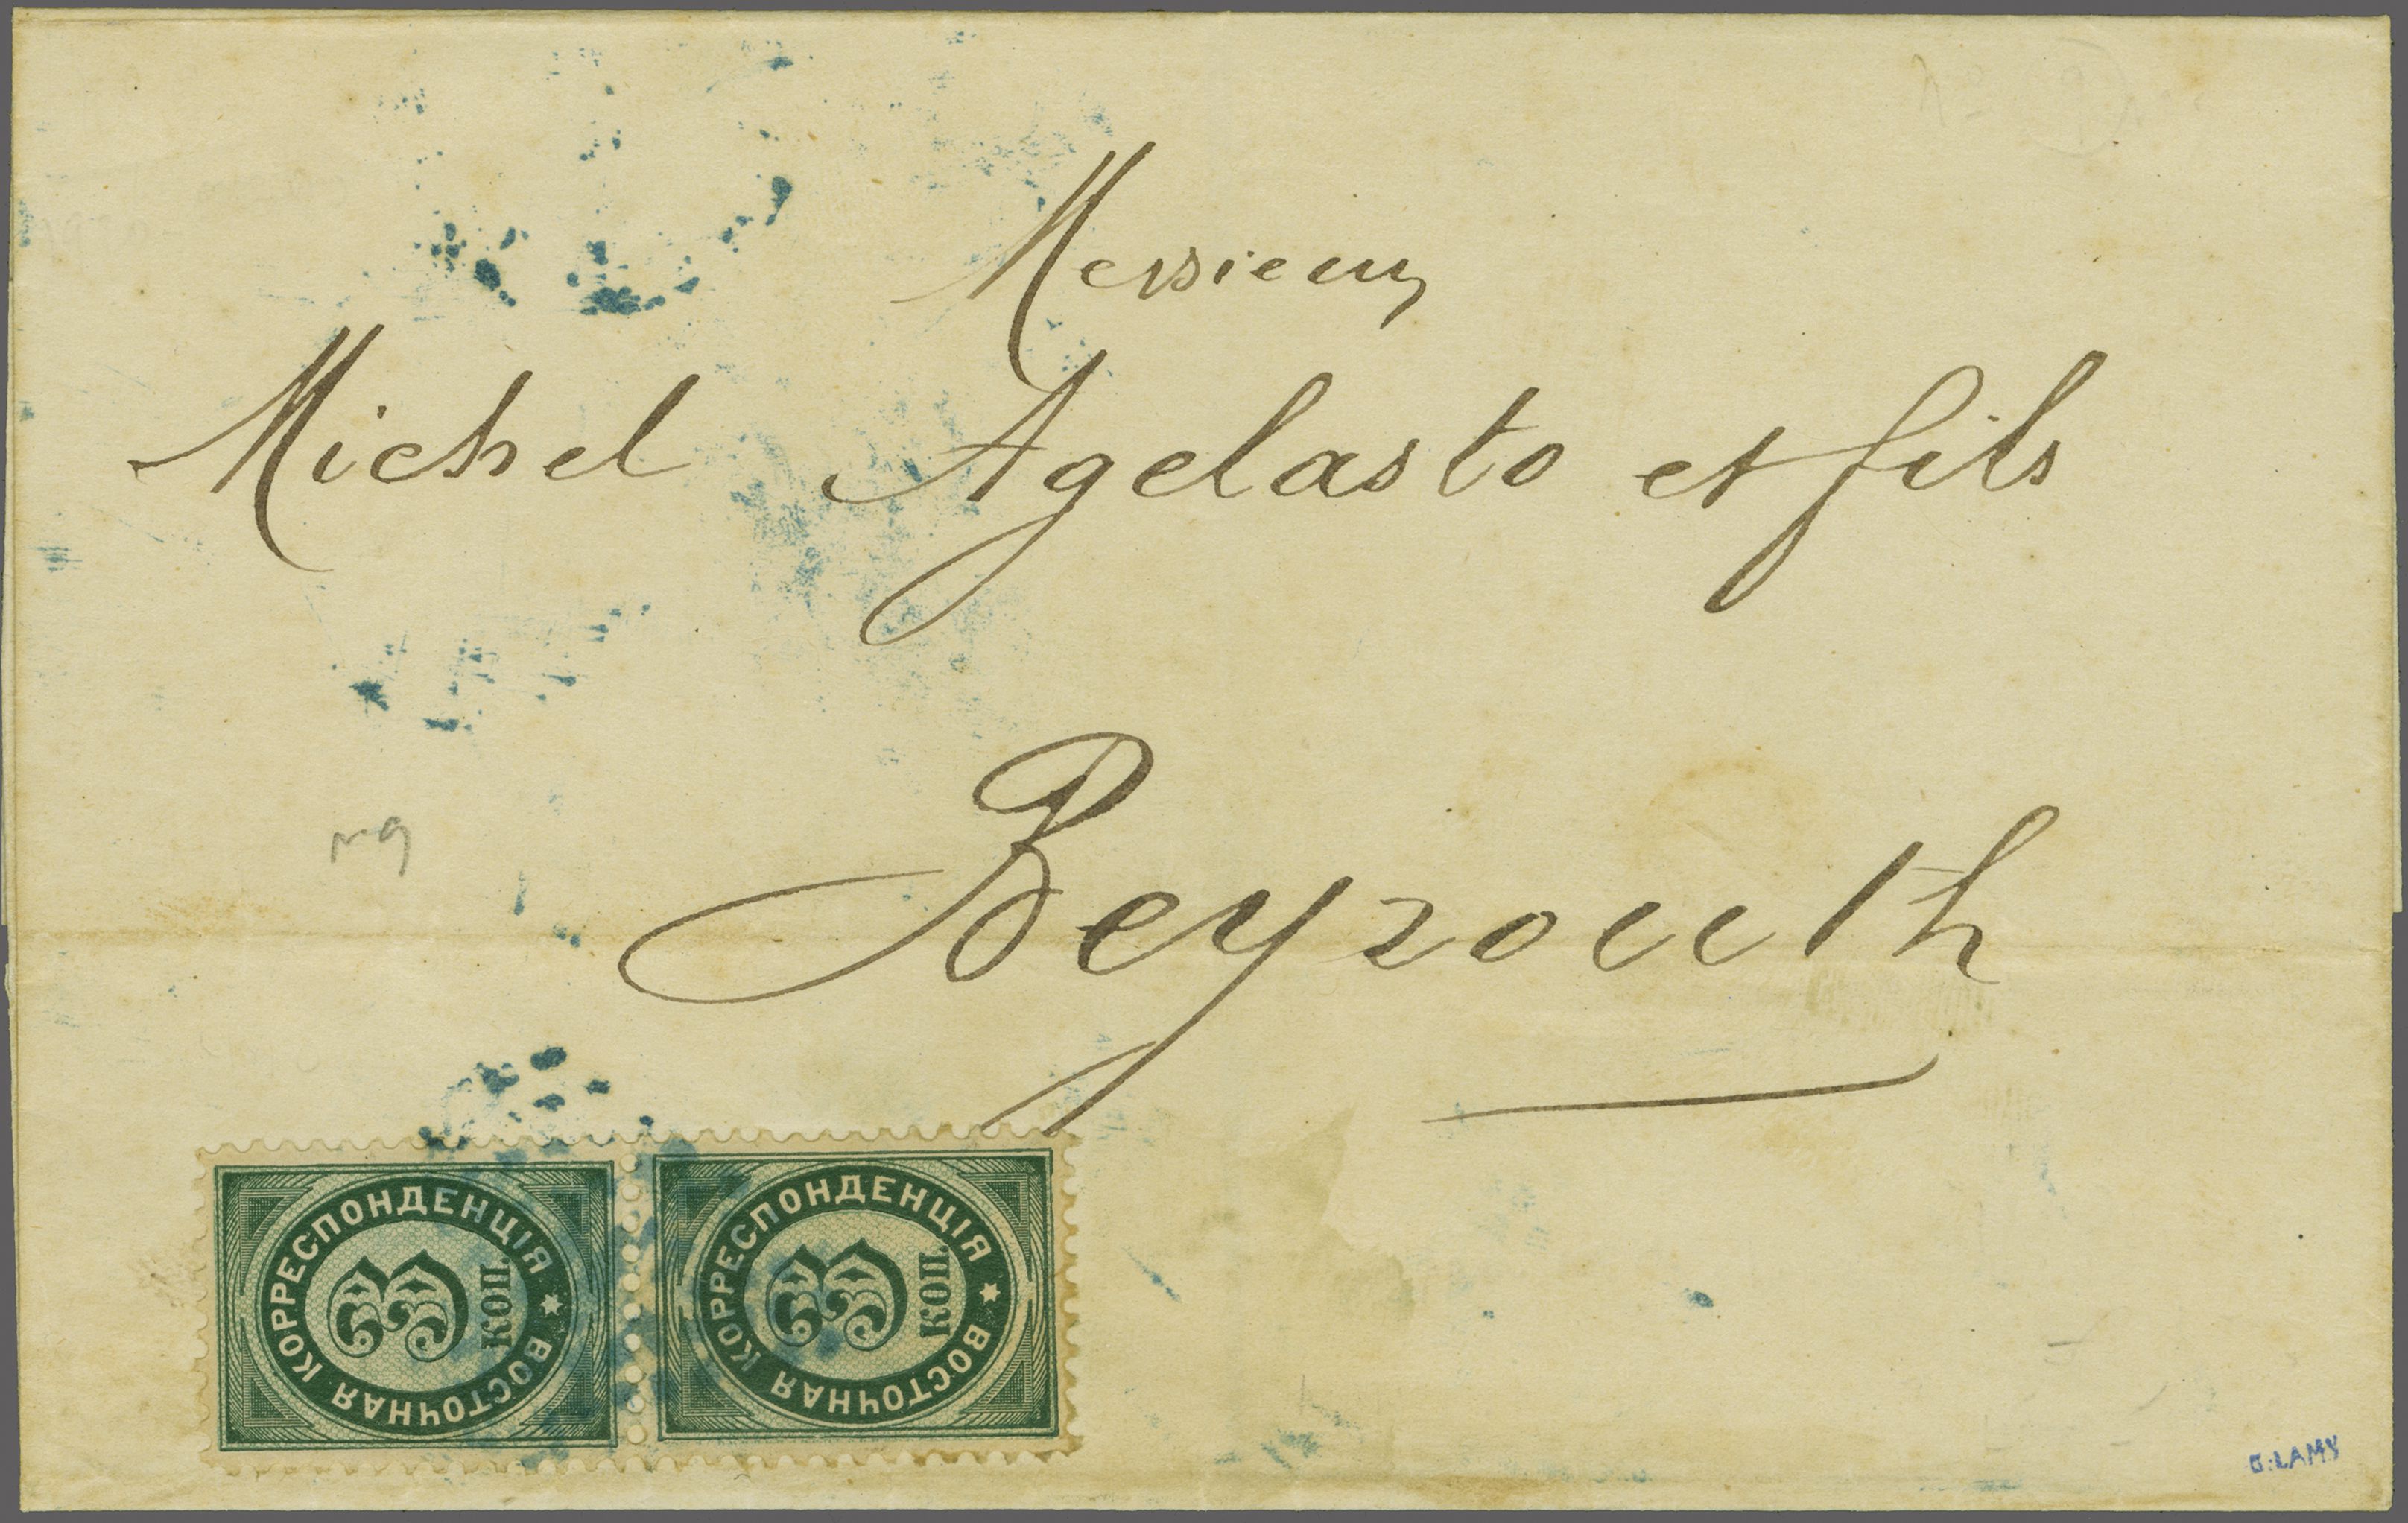 Messieurs
Michel Agelasto et fils
Beyrouth
ВОСТОЧНАЯ КОРРЕСПОНДЕНЦІЯ
3 КОП.
ВОСТОЧНАЯ КОРРЕСПОНДЕНЦІЯ
3 КОП.
G. LAMY